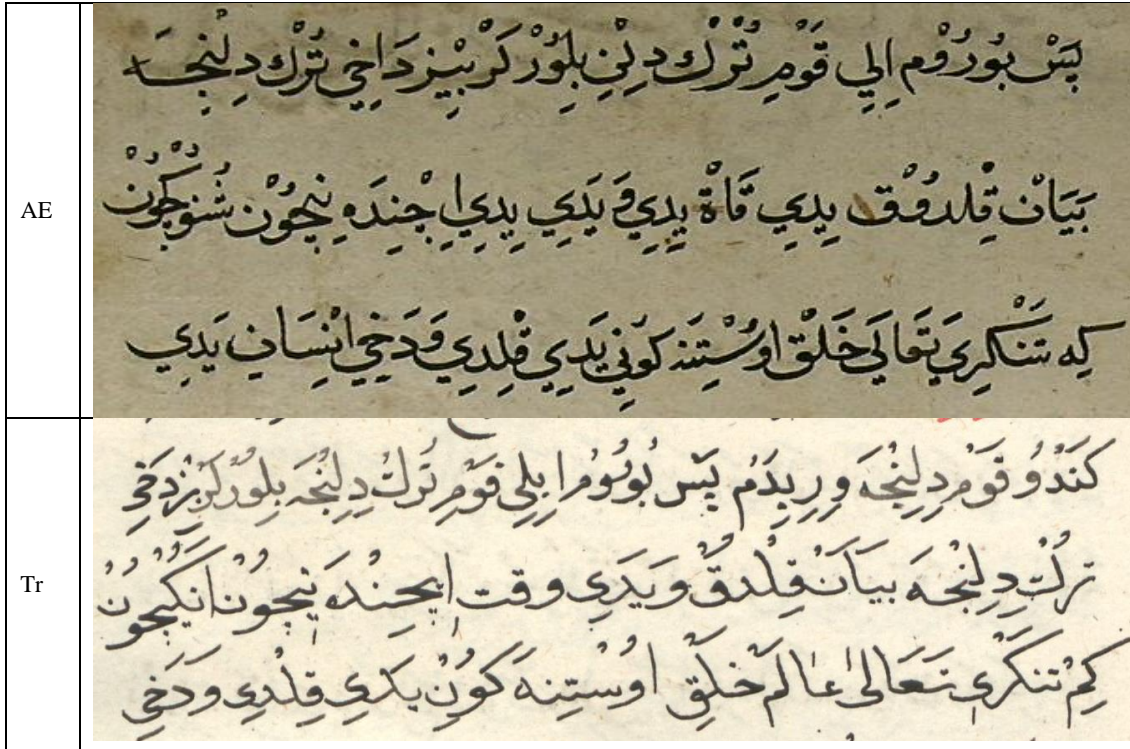 AE
پَسْ بُورُوْم اِلِي قَوْمِ تُرْك دِلِنِ بِلِوُرْكَرْ بِيْز دَاخِي تُرْك دِلِنْجَا
بَيَانْ قِلْدُوْق يِدِي قَاةْ يِدِي وَ يَدِي يِدِي اِيچِنْدَه نِيچُوْن شُنُوكچُوْنْ
كِه تَنْكْرِي تَعَالَي خَلْق اوُسْتِنَه كوُنِي يَدِي قِلْدِي وَدَخِي اِنْسَانِ يَدِي
Tr
كَنْدُو قَوْم دِلِنْجَه وِرِيدُم پَس بُو رُومُ اِيلِي قَوْمِ تُرك دِلِنْجَه بِلوُرْلَر بِزدَخِي
تركْ دِلِنْجَه بيَانْ قِلْدقْ وَ يَدِي وقت اِيچِنْدَه نيچُون انكيچُونْ
كِمْ تنكْرِي تَعَالىٰ عَالَمْ خَلْقِ اوُسْتِنه كُونِ يَدِي قِلْدِي وَدَخِي